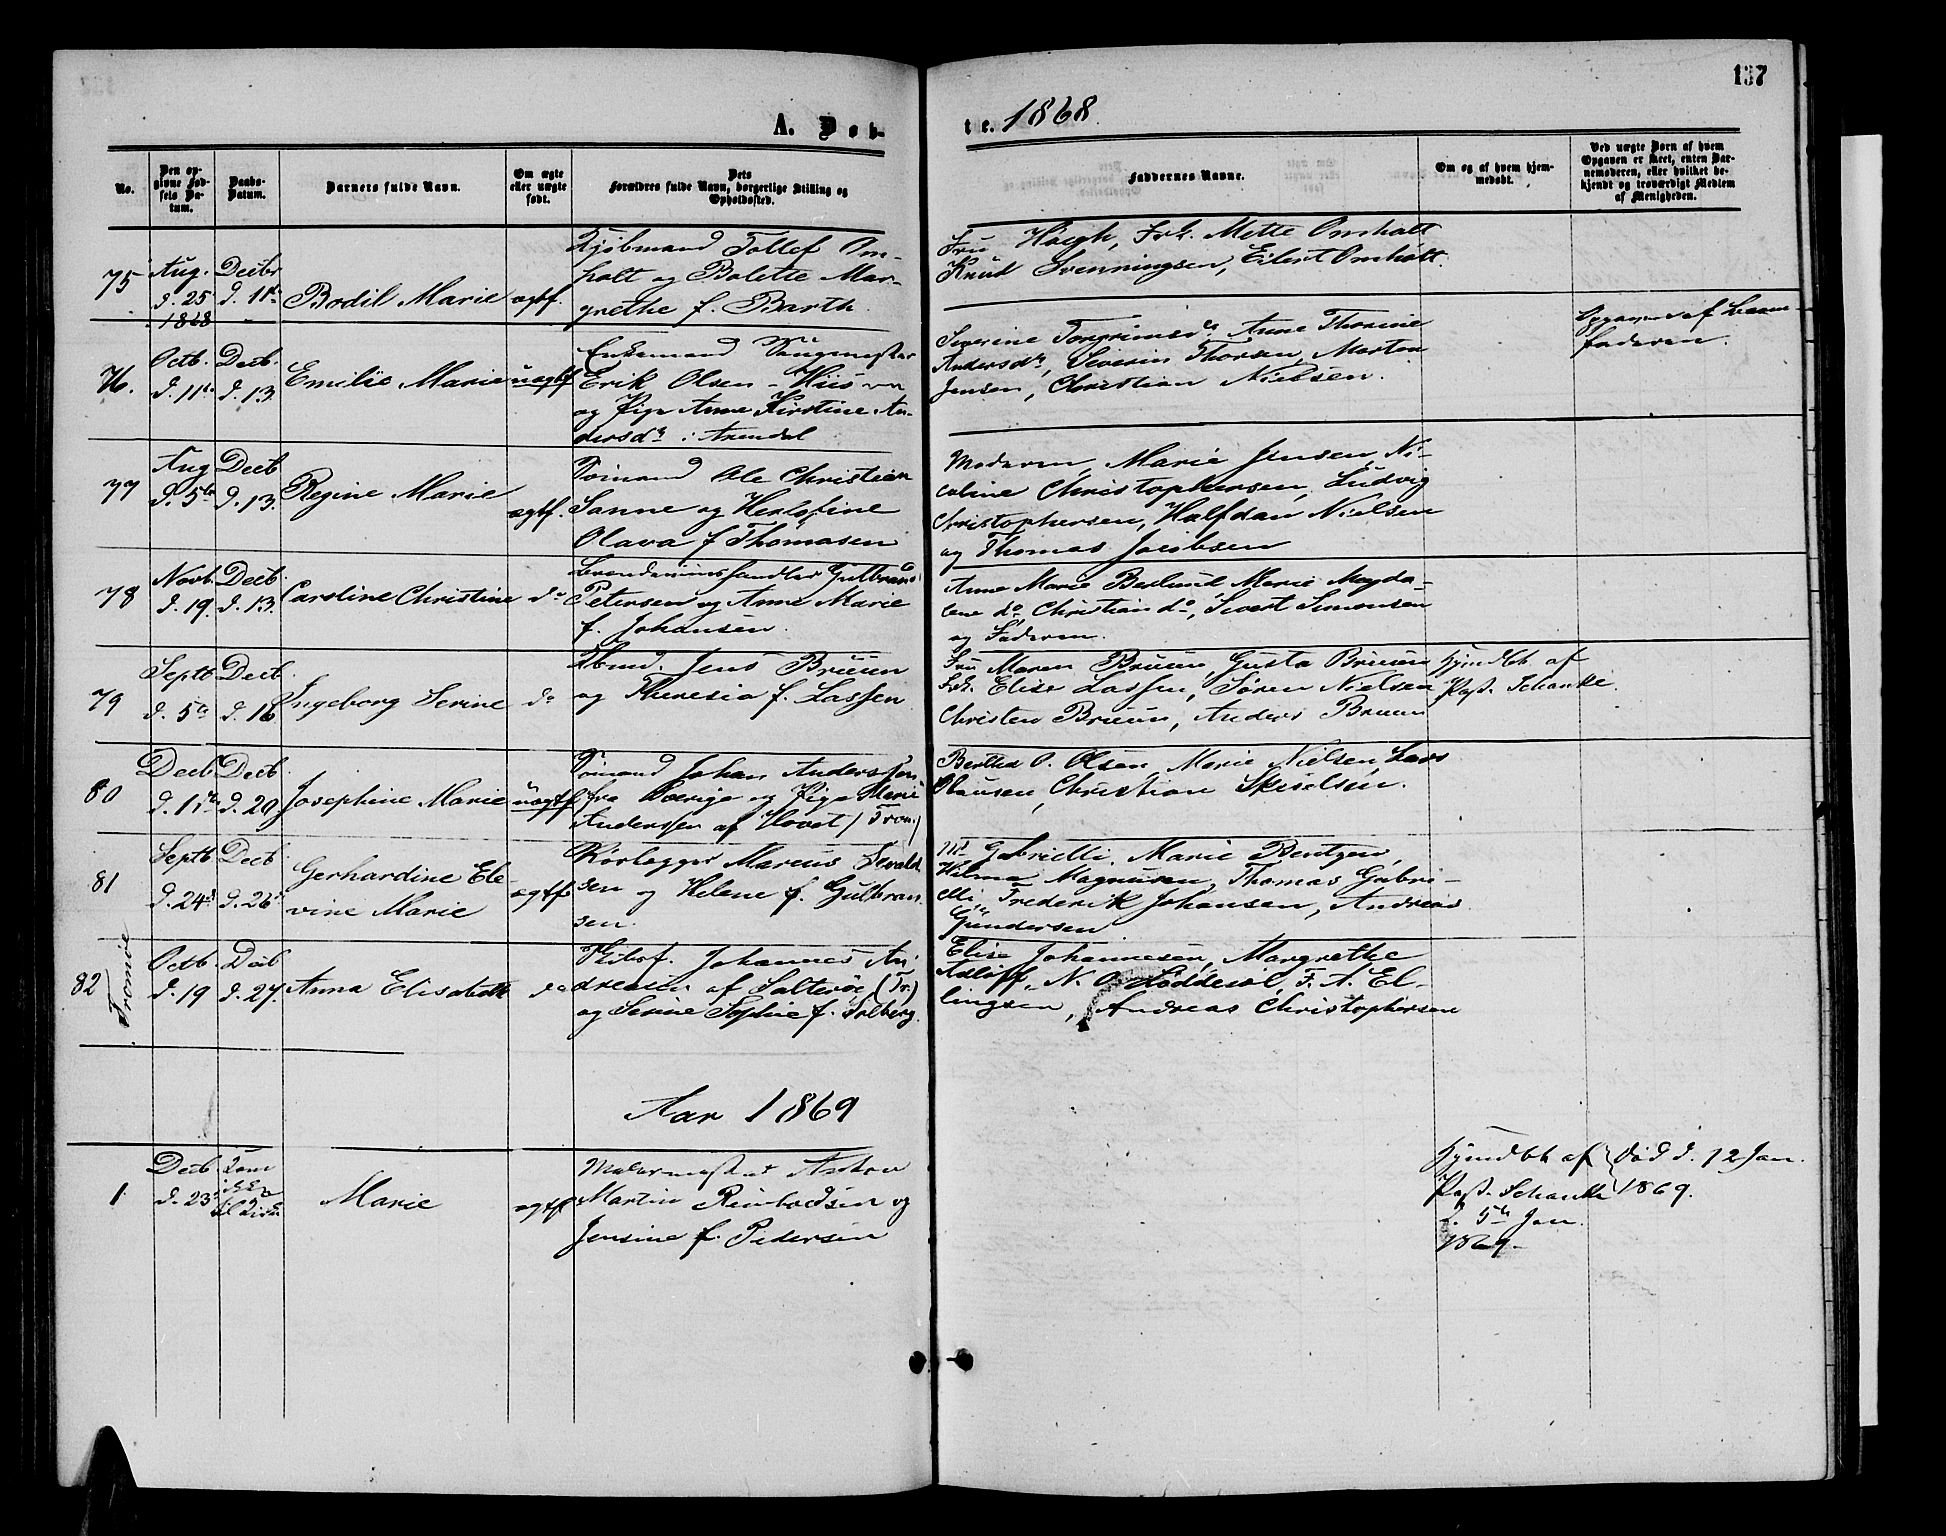 137
A. Døb-
te. 1868.
No.
Den op-
givne Fød-
sels Da-
tum.
Daabs-
Datum.
Barnets fulde Navn.
Om ægte
eller uægte
født.
Dets
Forældres fulde Navn, borgerlige Stilling og
Opholdssted.
Faddernes Navne.
Om og af hvem hjem-
medøbt.
Ved uægte Børn af hvem
Opgaven er skeet, enten Bar-
nemoderen, eller hvilket be-
kjendt og troværdigt Medlem
af Menigheden.
75
Aug.
d. 25
1868
Decbr
d. 11te
Bodil Marie
ægtf.
Kjøbmand Tollef Om-
holt og Bolette Mar-
grethe f. Barth.
Fru Høegh, Frk. Mette Omholt
Knud Svenningsen, Eilert Omholt.
76.
Octb.
d. 11te
Decb.
d. 13.
Emilie Marie
uægtf
Enkemand
Erik Olsen - Hiis
og Pige Anne Kirstine An-
dersdr i Arendal
Severine Torgrimsdr Anne Thorine
Andersdr, Severin Thorsen, Morten
Jensen, Christian Nielsen.
Opgaven af Barne-
faderen.
77
Aug
d. 5te
Decb
d. 13.
Regine Marie
ægtf.
Sømand Ole Christian
Sanne og Herlofine
Olava f. Thomasen
Moderen, Marie Jensen, Ni-
coline Christophersen, Ludvig
Christophersen, Halfdan Nielsen
og Thomas Jacobsen
78
Novb.
d. 19.
Decb.
d. 13.
Caroline Christine
do
Brændeviinshandler Gulbrand
Petersen og Anne Marie
f. Johansen.
Anne Marie Berlund, Marie Magda-
lene do, Christian do, Sivert Simonsen
og Faderen.
79
Septb
d. 5te
Decb.
d. 16
Ingeborg Serine
do
Kbmd. Jens Bruun
og Theresia f. Lassen
Fru Maren Bruun, Gusta Bruun
Frk. Elise Lassen, Søren Nielsen
Christen Bruun, Anders Bruun
Hjemdbt af
Past. Schanke.
80
Decb
d. 1ste
Decb.
d. 20.
Josephine Marie
uægtf
Sømand Johan Anderssen
fra Sverige og Pige Marie
Anderssen af Hovet (Trom)
Berthe O. Olsen, Marie Nielsen, Lars
Olausen, Christian
81
Septb
d. 24de
Decb
d. 26.
Gerhardine Ele-
vine Marie
ægtf
Rørlegger Marcus Sevald-
sen og Helene f. Gulbran-
sen.
Md Gabrielli, Marie Bentzen,
Hilma Magnusen, Thomas Gabri-
elli, Frederik Johansen, Andreas
Gundersen
82
Tromøe
Octb.
d. 19
Decb
d. 27.
Anna Elisabeth
do
Skibsf. Johannes An-
dreasen af Salterøe (Tr.)
og Serine Sophie f. Solberg.
Elise Johannesen, Margrethe
Adloff, N. O. Løddesøl, F. A. El-
lingsen, Andreas Christophersen
Aar 1869
1
Decb.
d. 23de
Marie
ægtf
Malermester Anton
Martin Reinholdsen og
Jensine f. Pedersen
Hjemdbt af
Past. Schanke
d. 5te Jan.
1869.
død d. 12 Jan.
1869.